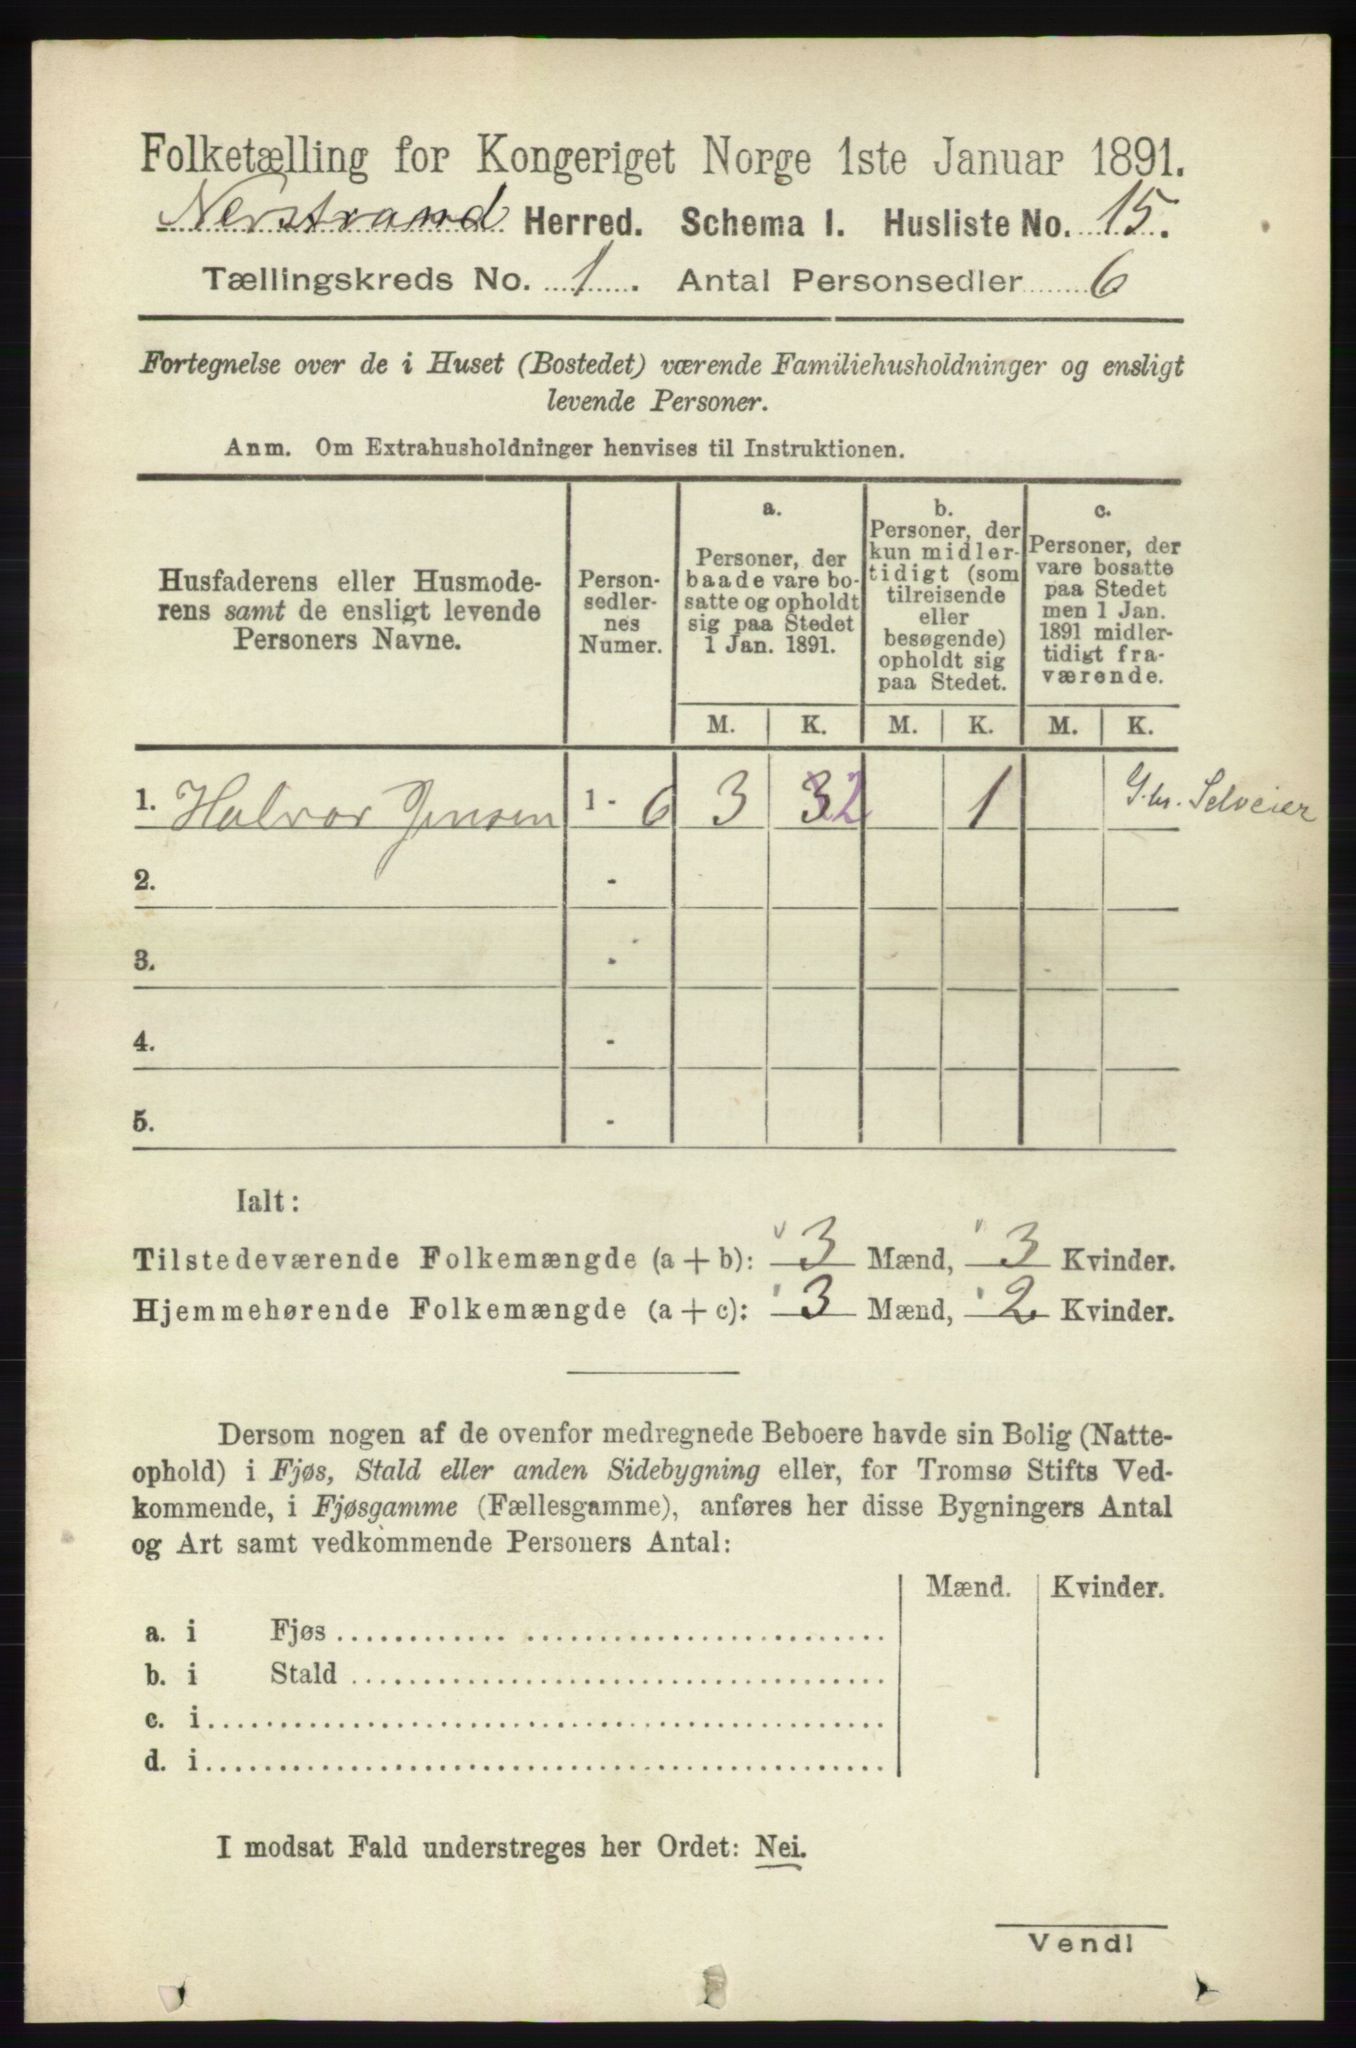 Folketælling for Kongeriget Norge 1ste Januar 1891.
Nerstrand Herred. Schema I. Husliste No. 15.
Tællingskreds No. 1. Antal Personsedler 6
Fortegnelse over de i Huset (Bostedet) værende Familiehusholdninger og ensligt
levende Personer.
Anm. Om Extrahusholdninger henvises til Instruktionen.
Husfaderens eller Husmode-
rens samt de ensligt levende
Personers Navne.
Person-
sedler-
nes
Numer.
a.
Personer, der
baade vare bo-
satte og opholdt
sig paa Stedet
1 Jan. 1891.
b.
Personer, der
kun midler-
tidigt (som
tilreisende
eller
besøgende)
opholdt sig
paa Stedet.
c.
Personer, der
vare bosatte
paa Stedet
men 1 Jan.
1891 midler-
tidigt fra-
værende.
M. K. M. K. M. K.
1. Halvor Jensen 1 - 6 3 32 1 Selveier
2. -
3. -
4. -
5. -
Ialt:
Tilstedeværende Folkemængde (a + b): 3 Mænd, 3 Kvinder.
Hjemmehørende Folkemængde (a + c): 3 Mænd, 2 Kvinder.
Dersom nogen af de ovenfor medregnede Beboere havde sin Bolig (Natte-
ophold) i Fjøs, Stald eller anden Sidebygning eller, for Tromsø Stifts Ved-
kommende, i Fjøsgamme (Fællesgamme), anføres her disse Bygningers Antal
og Art samt vedkommende Personers Antal:
Mænd. Kvinder.
a. i Fjøs
b. i Stald
c. i
d. i
I modsat Fald understreges her Ordet: Nei.
Vend!